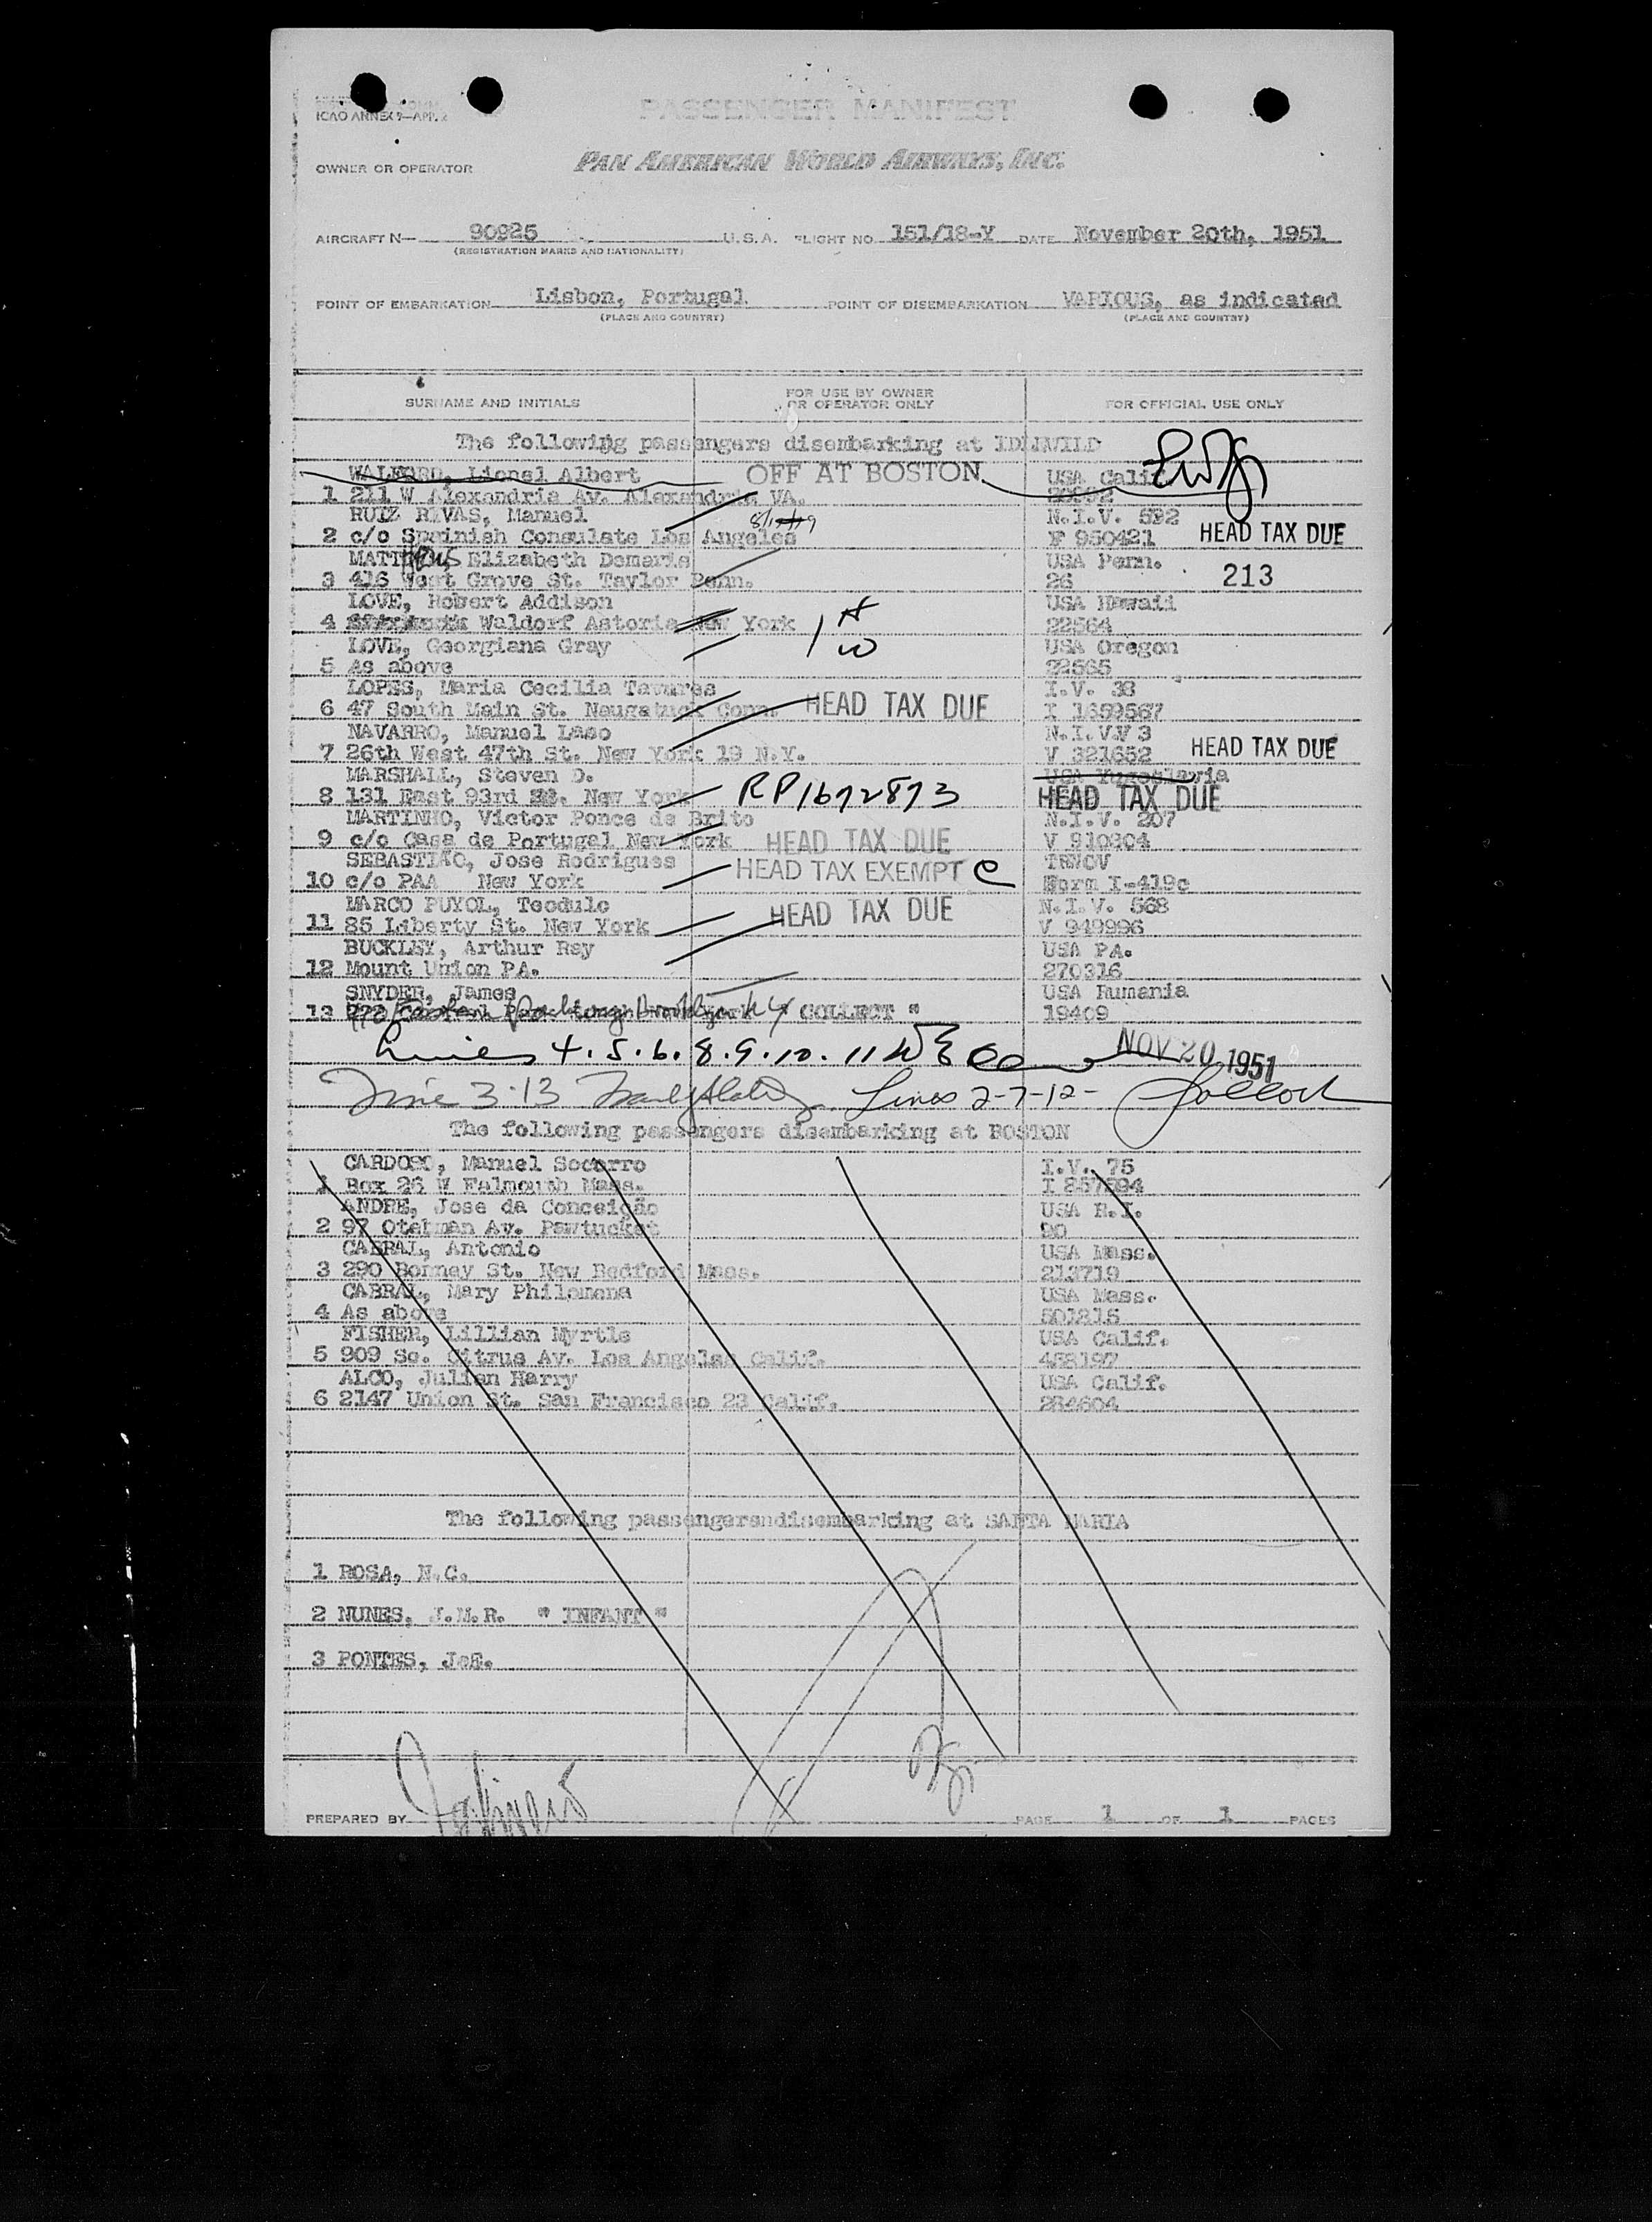 ICAO ANNEX 9—APP. 2
PASSENGER MANIFEST
OWNER OR OPERATOR PAN AMERICAN WORLD AIRWAYS, INC.
AIRCRAFT N— 90925 U.S.A. FLIGHT NO. 151/18-Y DATE November 20th, 1951
(REGISTRATION MARKS AND NATIONALITY)
POINT OF EMBARKATION Lisbon, Portugal POINT OF DISEMBARKATION VARIOUS, as indicated
(PLACE AND COUNTRY) (PLACE AND COUNTRY)
SURNAME AND INITIALS FOR USE BY OWNER OR OPERATOR ONLY FOR OFFICIAL USE ONLY
The following passengers disembarking at IDLEWILD
WALFORD, Lionel Albert OFF AT BOSTON USA Calif.
1 211 W Alexandria Av. Alexandria VA.
RUIZ RIVAS, Manuel N.I.V. 592
2 c/o Spainish Consulate Los Angeles F 950421 HEAD TAX DUE
Elizabeth Demaris USA Penn.
3 416 West Grove St. Taylor Penn. 26 213
LOVE, Robert Addison USA Hawaii
4 Waldorf Astoria New York 22564
LOVE, Georgiana Gray USA Oregon
5 As above 22565
LOPES, Maria Cecilia Tavares I.V. 38
6 47 South Main St. Naugatuck Conn. HEAD TAX DUE I 1659567
NAVARRO, Manuel Laso N.I.V.V 3
7 26th West 47th St. New York 19 N.Y. V 321652 HEAD TAX DUE
MARSHALL, Steven D. USA Yugoslavia
8 131 East 93rd St. New York RP1672873 HEAD TAX DUE
MARTINHO, Victor Ponce de Brito N.I.V. 207
9 c/o Casa de Portugal New York HEAD TAX DUE V 910804
SEBASTIÃO, Jose Rodrigues HEAD TAX EXEMPT C TRWOV
10 c/o PAA New York Form I-419c
MARCO PUYOL, Teodulo HEAD TAX DUE N.I.V. 568
11 85 Liberty St. New York V 949996
BUCKLEY, Arthur Ray USA PA.
12 Mount Union PA. 270316
SNYDER, James USA Rumania
13 COLLECT " 19409
Lines 4.5.6.8.9.10.11 NOV 20 1951
Line 3-13 Lines 2-7-12-
The following passengers disembarking at BOSTON
CARDOSO, Manuel Socorro I.V. 75
1 Box 26 W Falmouth Mass. I 857594
ANDRE, Jose da Conceição USA R.I.
2 97 Av. Pawtucket 90
CABRAL, Antonio USA Mass.
3 290 Bonney St. New Bedford Mass. 213719
CABRAL, Mary Philomena USA Mass.
4 As above 501215
FISHER, Lillian Myrtle USA Calif.
5 909 So. Citrus Av. Los Angeles Calif. 458197
ALCO, Julian Harry USA Calif.
6 2147 Union St. San Francisco 23 Calif. 284604
The following passengersndisembarking at SANTA MARIA
1 ROSA, N.C.
2 NUNES, J.M.R. " INFANT "
3 PONTES, J.E.
PREPARED BY PAGE 1 OF 1 PAGES